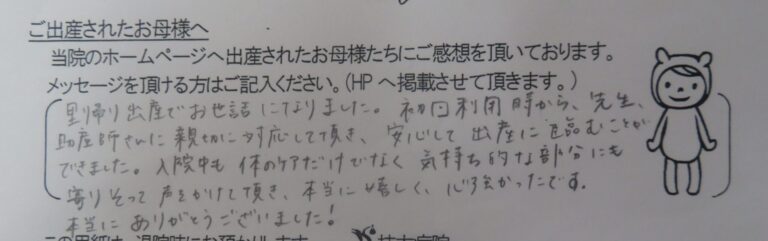 ご出産されたお母様へ
当院のホームページへ出産されたお母様たちにご感想を頂いております。
メッセージを頂ける方はご記入ください。(HPへ掲載させて頂きます。)
里帰り出産でお世話になりました。初回利用時から、先生、
助産師さんに親切に対応して頂き、安心して出産に臨むことが
できました。入院中も体のケアだけでなく気持ち的な部分にも
寄りそって声をかけて頂き、本当に嬉しく、心強かったです。
本当にありがとうございました!